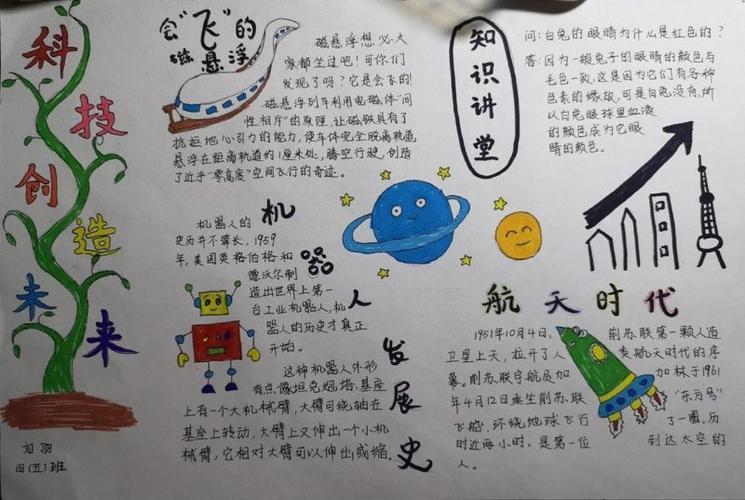 科技创造未来
会“飞”的
磁悬浮
磁悬浮想必大
家都坐过吧！可你们
发现了吗？它是会飞的！
磁悬浮列车利用电磁体“同
性相斥”的原理，让磁铁具有了
抗拒地心引力的能力，使车体完全脱离轨道，
悬浮在距离轨道约1厘米处，腾空行驶，创造
了近乎“零高度”空间飞行的奇迹。
知识讲堂
问：白兔的眼睛为什么是红色的？
答：因为一般兔子的眼睛的颜色与
毛色一致，这是因为它们有各种
色素的缘故，可是白兔没有，所
以白兔眼球里血液
的颜色成为它眼
睛的颜色。
机器人发展史
机器人的
历史并不算长，1959
年，美国英格伯格和
德沃尔制
造出世界上第一
台工业机器人，机
器人的历史才真正
开始。
这种机器人外形
有点像坦克炮塔，基座
上有一个大机械臂，大臂可绕轴在
基座上转动，大臂上又伸出一个小机
械臂，它相对大臂可以伸出或缩。
航天时代
1951年10月4日，前苏联第一颗人造
卫星上天，拉开了人类航天时代的序
幕。前苏联宇航员加加林于1961
年4月12日乘坐前苏联“东方号”
飞船，环绕地球飞行了一圈，历
时近两小时，是第一位到达太空的
人。
刘羽
四（五）班